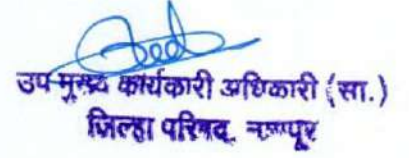 उप मुख्य कार्यकारी अधिकारी (सा.)
जिल्हा परिषद, नागपूर